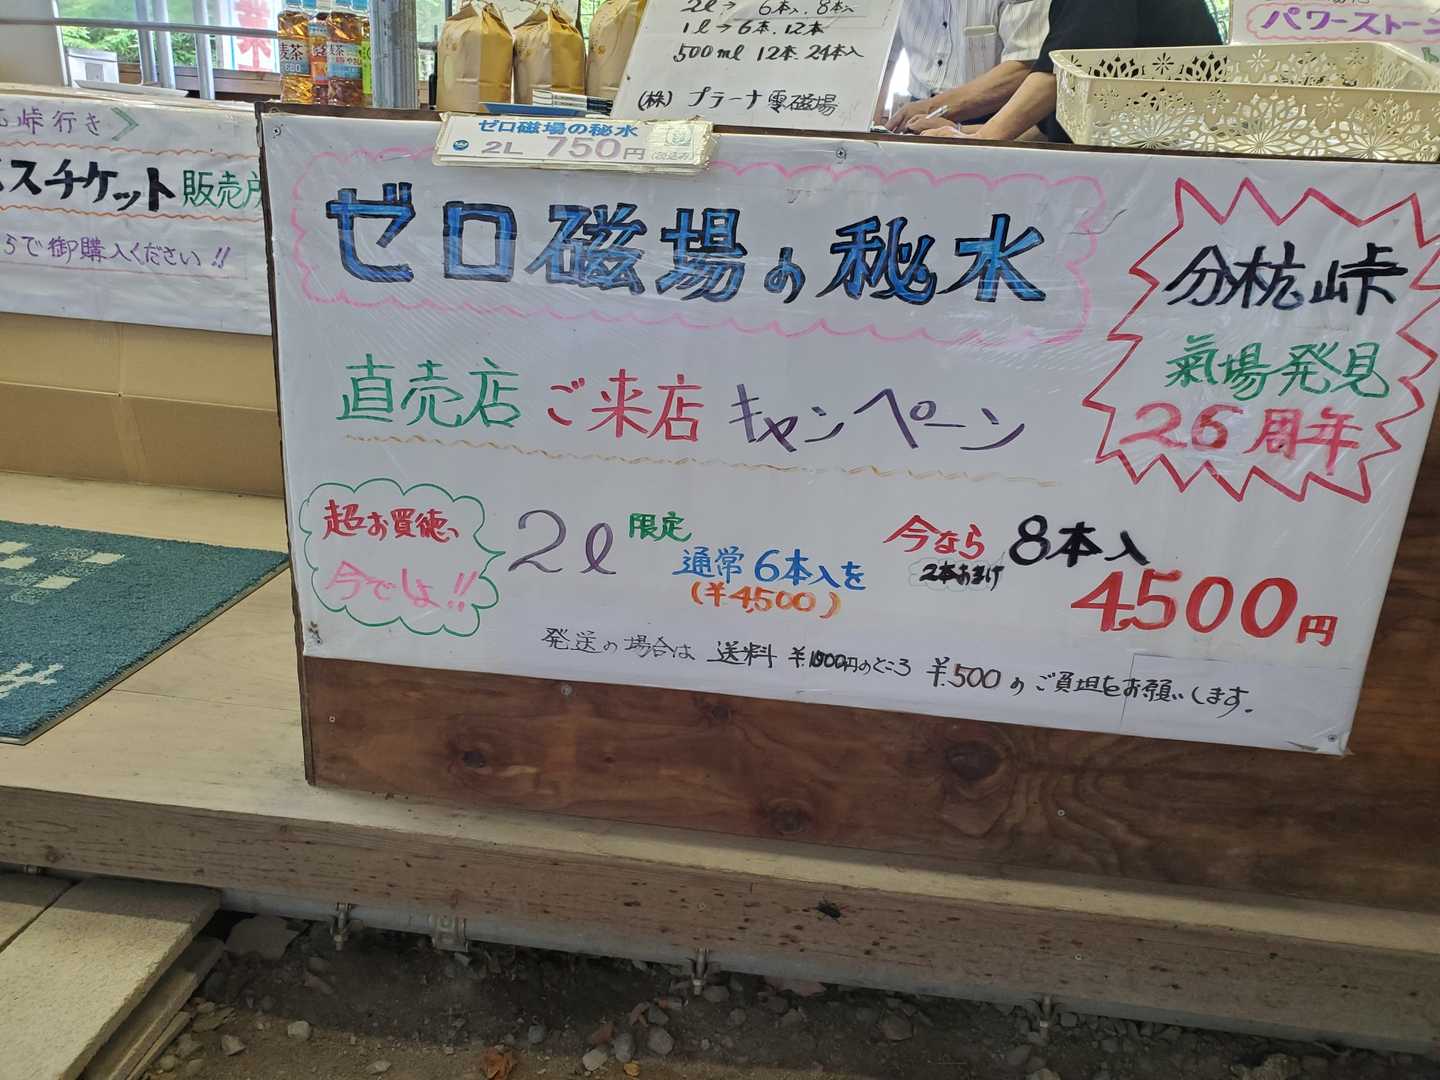 2ℓ→ 6本入. 8本入
1ℓ→6本. 12本
500ml 12本. 24本入
(株) プラーナ零磁場
パワーストーン
麦茶
麦茶
峠行き
スチケット 販売所
らで御購入ください!!
ゼロ磁場の秘水
2L 750円(税込み)
ゼロ磁場の秘水
分杭峠
氣場発見
26周年
直売店 ご来店 キャンペーン
超お買徳っ
今でしょ!!
2ℓ 限定
通常 6本入を
(¥4,500)
今なら 8本入
2本おまけ
4,500円
発送の場合は 送料 ¥1000円のところ ¥.500 のご負担をお願いします。